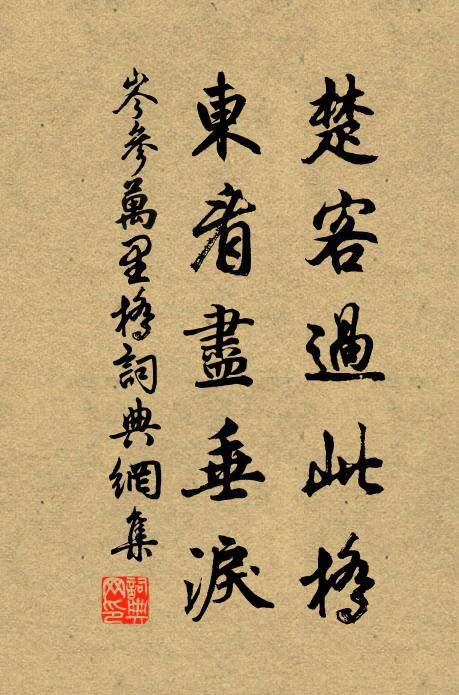 楚客過此橋
東看盡垂淚
岑參萬里橋詞典網集
詞典網印